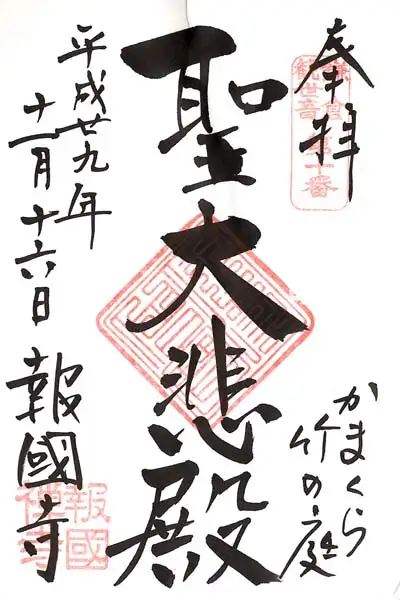 奉拝
鎌倉
観世音
第十番
かまくら
竹の庭
聖大悲殿
平成廿九年
十一月十六日
報國寺
報國
禅寺